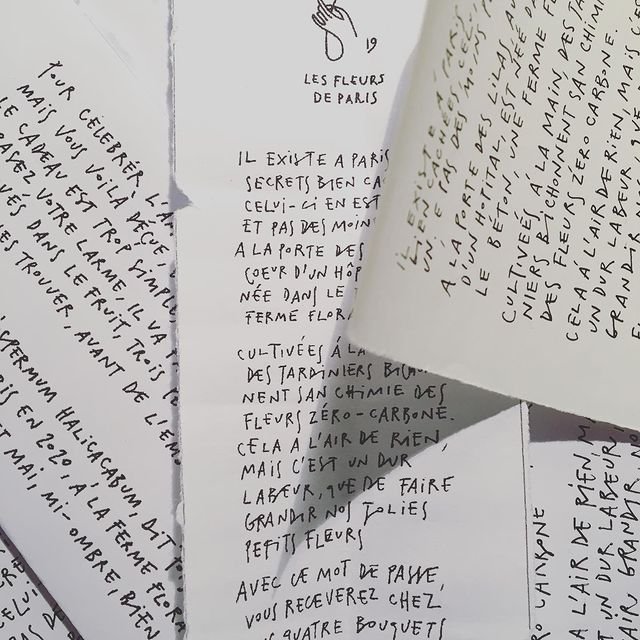 POUR CÉLÉBRER L'A
MAIS VOUS VOILÀ DÉÇUE
LE CADEAU EST TROP SIMPLE,
VOTRE LARME, IL VA
DANS LE FRUIT, TROIS
TROUVER, AVANT DE L'EM
HALICACABUM, DIT
EN 2020, À LA FERME FLORA
MAI, MI-OMBRE, BIEN
19
LES FLEURS
DE PARIS
IL EXISTE A PARIS
SECRETS BIEN CA
CELUI-CI EN EST
ET PAS DES MOIN
A LA PORTE DES
COEUR D'UN HÔP
NÉE DANS LE
FERME FLORA
CULTIVÉES À LA
DES JARDINIERS BICHON
NENT SAN CHIMIE DES
FLEURS ZÉRO-CARBONE.
CELA A L'AIR DE RIEN,
MAIS C'EST UN DUR
LABŒUR, QUE DE FAIRE
GRANDIR NOS JOLIES
PETITS FLŒURS
AVEC CE MOT DE PASSE,
VOUS RECEVEREZ CHEZ
QUATRE BOUQUETS
IL EXISTE À PARIS
BIEN CACHÉES, CELUI
UN E PAS DES MOINS
A LA PORTE DES LILAS, AU
D'UN HOPITAL, EST NÉE DA
LE BÉTON, UNE FERME F
CULTIVEÉS À LA MAIN, DES JA
NIERS BICHONNENT SAN CHIMI
DES FLEURS ZÉRO CARBONE.
CELA À L'AIR DE RIEN, MAIS C'ES
UN DUR LABEUR, QUE
GRANDIR
CARBONE
A L'AIR DE RIEN, M
T UN DUR LABEUR,
GRANDIR NO